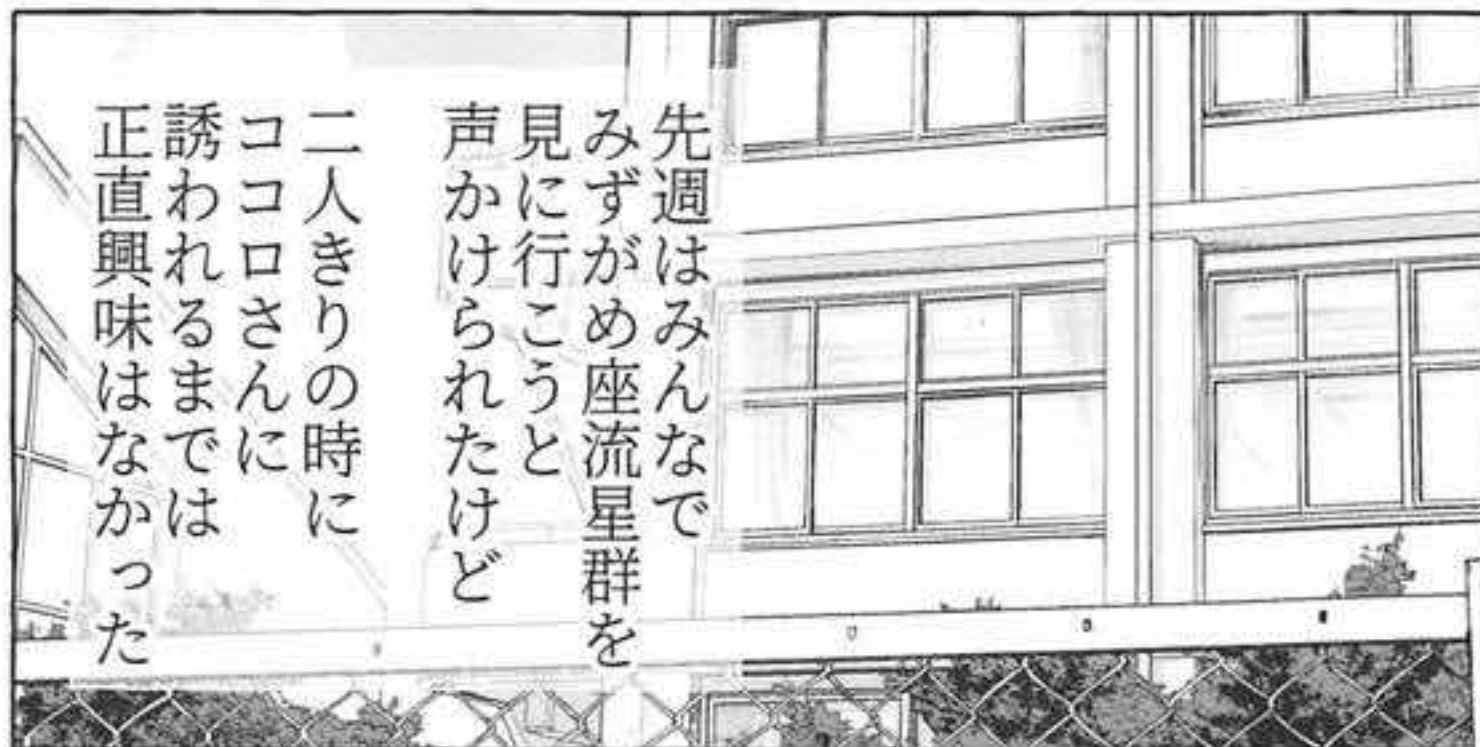 先週はみんなで
みずがめ座流星群を
見に行こうと
声かけられたけど
二人きりの時に
ココロさんに
誘われるまでは
正直興味はなかった